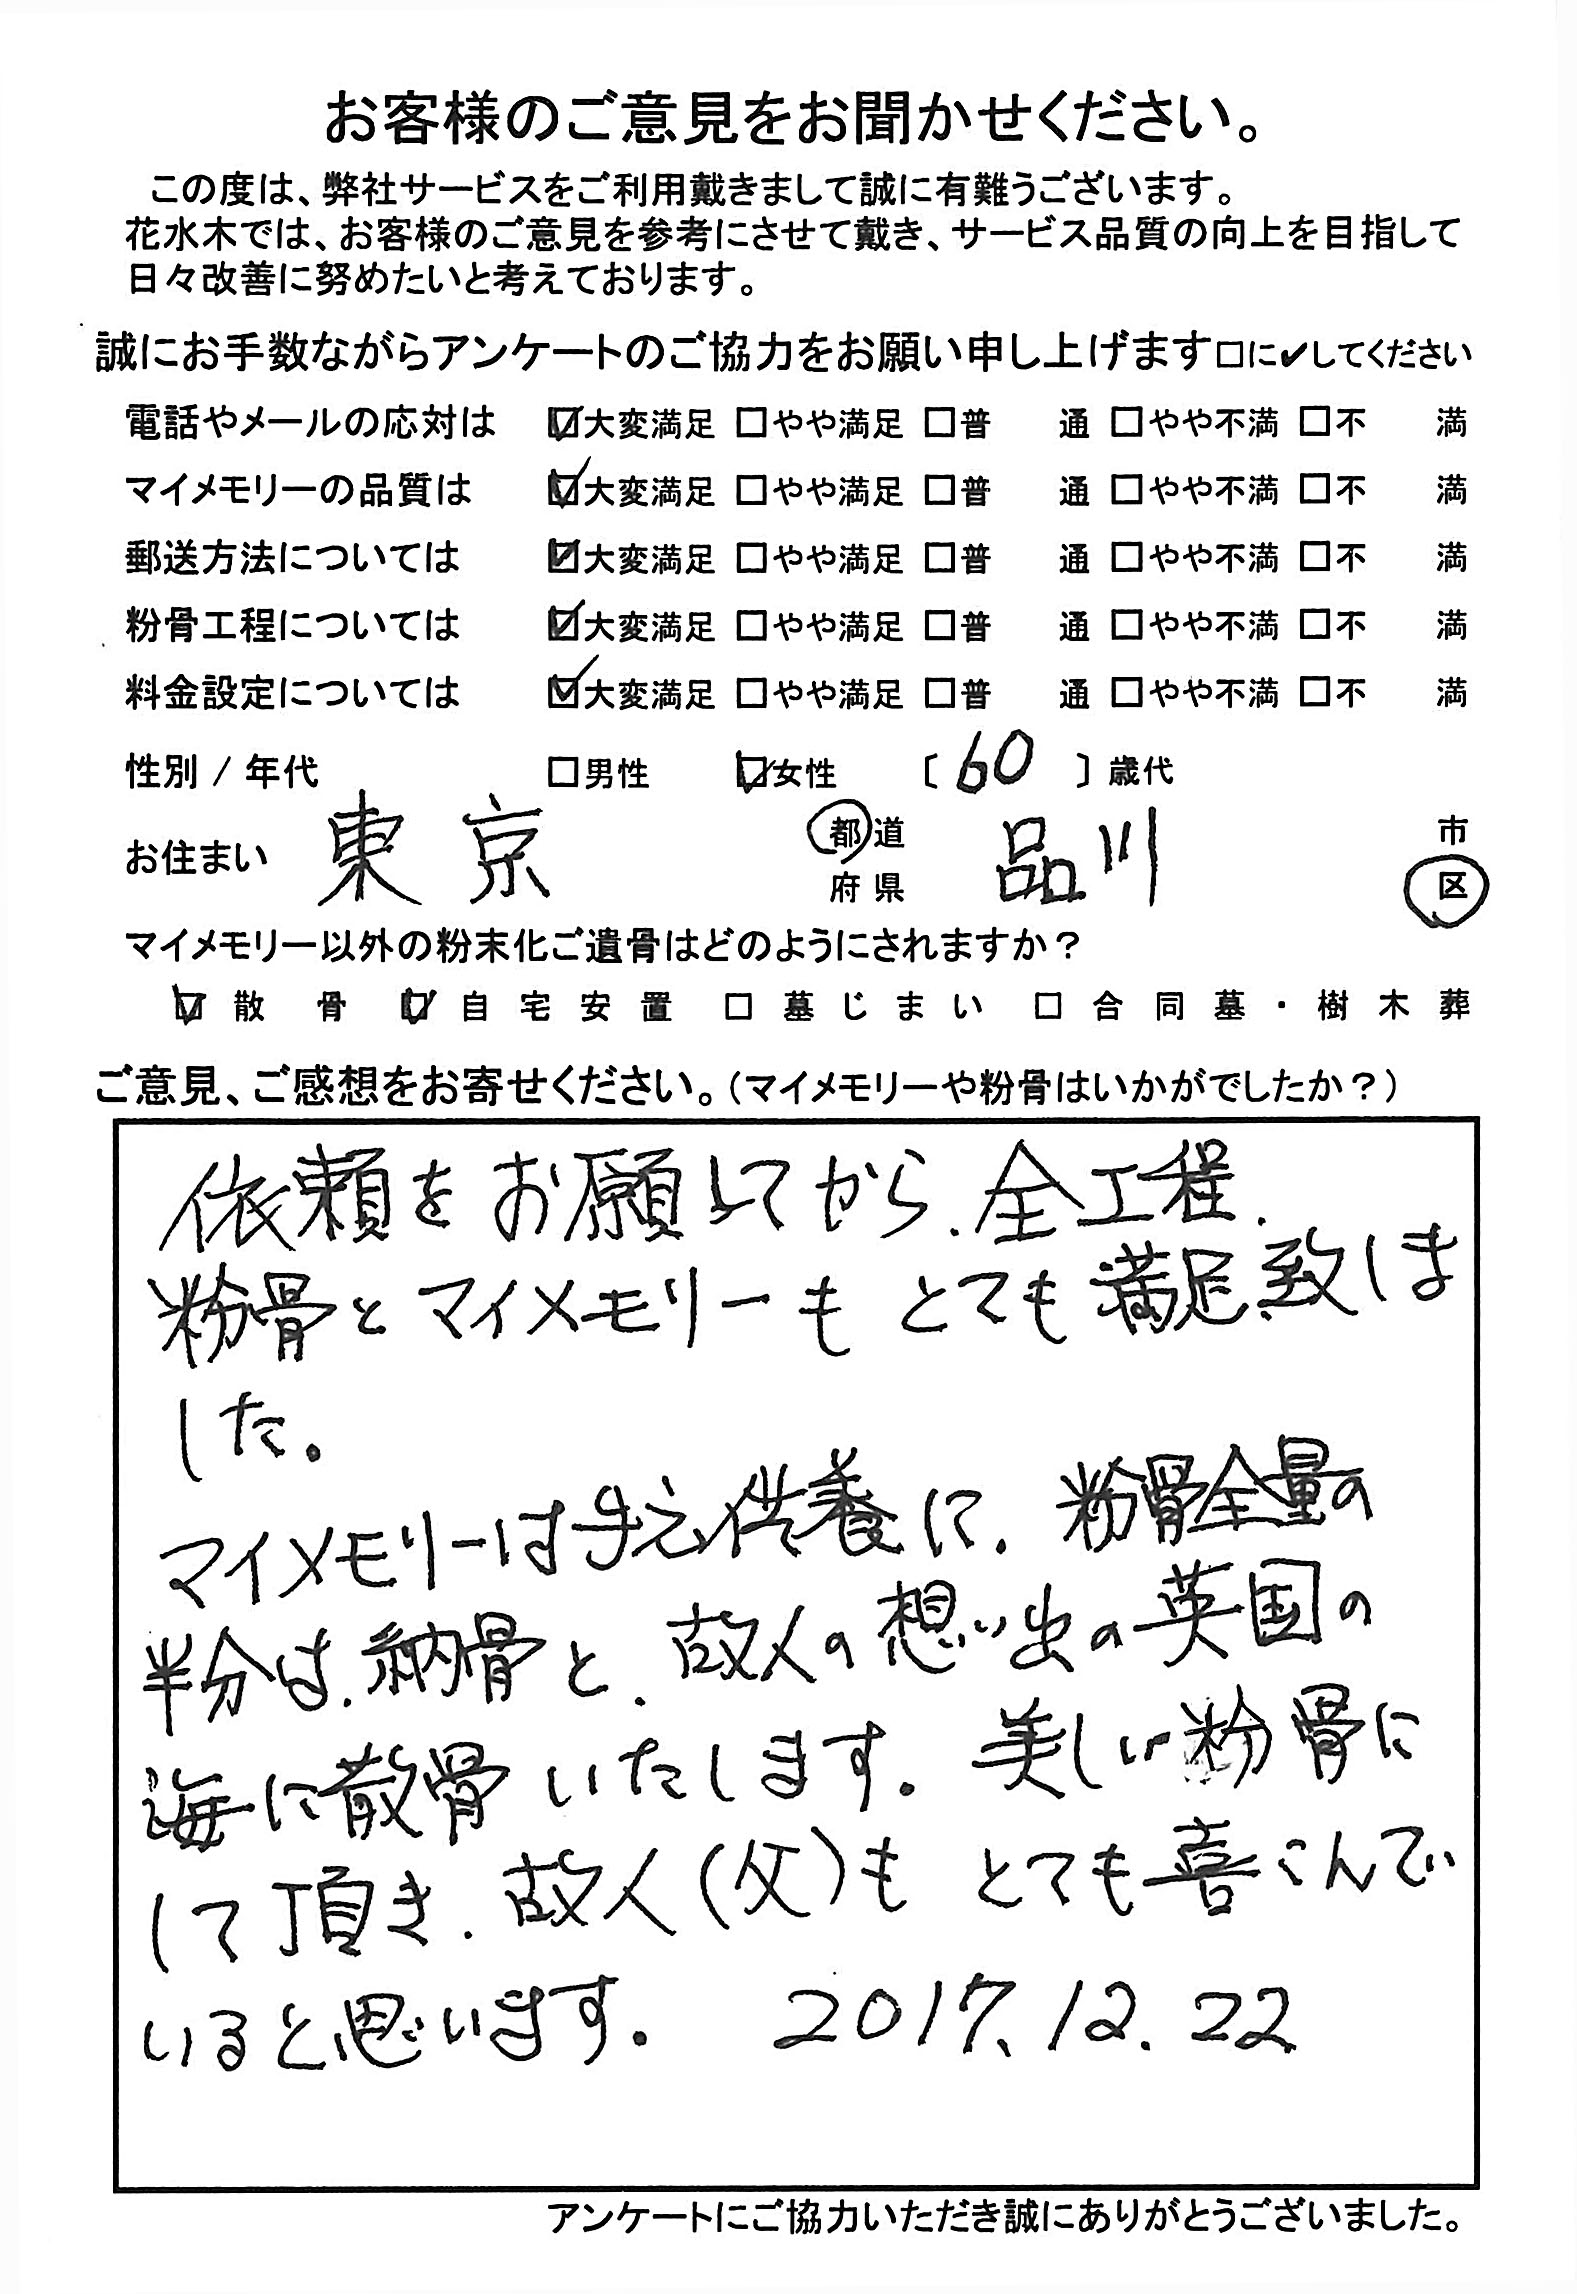 お客様のご意見をお聞かせください。
この度は、弊社サービスをご利用戴きまして誠に有難うございます。
花水木では、お客様のご意見を参考にさせて戴き、サービス品質の向上を目指して
日々改善に努めたいと考えております。
誠にお手数ながらアンケートのご協力をお願い申し上げます□に✔してください
電話やメールの応対は ☑大変満足 □やや満足 □普 通 □やや不満 □不 満
マイメモリーの品質は ☑大変満足 □やや満足 □普 通 □やや不満 □不 満
郵送方法については ☑大変満足 □やや満足 □普 通 □やや不満 □不 満
粉骨工程については ☑大変満足 □やや満足 □普 通 □やや不満 □不 満
料金設定については ☑大変満足 □やや満足 □普 通 □やや不満 □不 満
性別 / 年代 □男性 ☑女性 〔 60 〕歳代
お住まい 東京 都道府県 品川 市区
マイメモリー以外の粉末化ご遺骨はどのようにされますか？
☑ 散骨 ☑ 自宅安置 □ 墓じまい □ 合同墓・樹木葬
ご意見、ご感想をお寄せください。（マイメモリーや粉骨はいかがでしたか？）
依頼をお願いしてから、全工程、
粉骨とマイメモリーも とても満足致しま
した。
マイメモリーは手元供養に、粉骨全量の
半分は、納骨と、故人の想い出の英国の
海に散骨いたします。美しい粉骨に
して頂き、故人（父）も とても喜こんで
いると思います。 2017.12.22
アンケートにご協力いただき誠にありがとうございました。